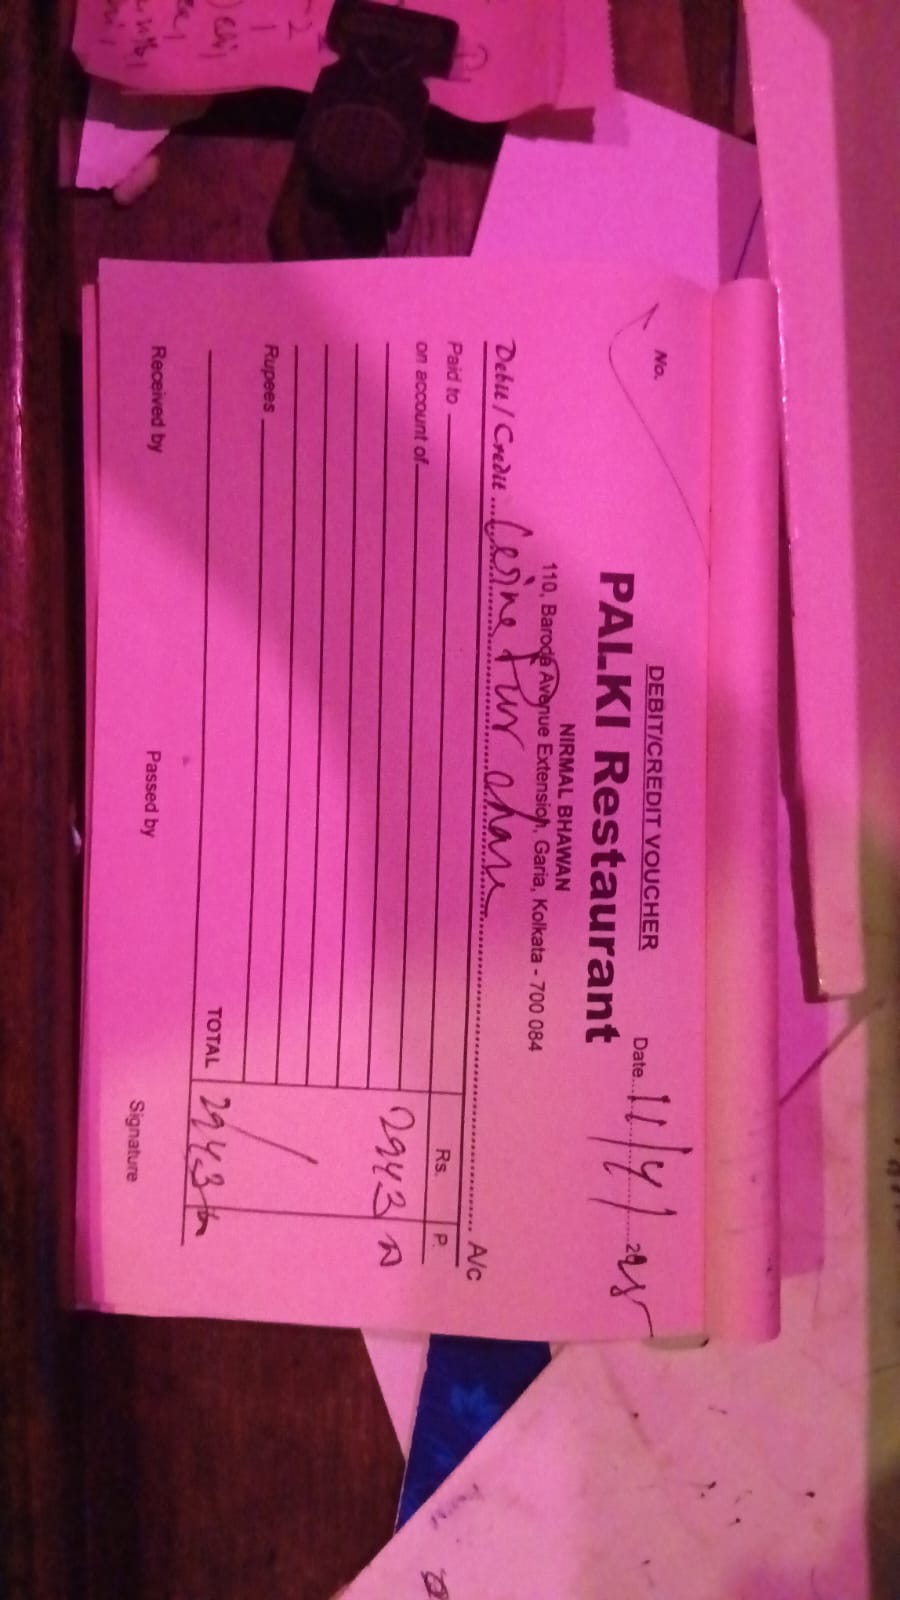 DEBIT/CREDIT VOUCHER
No.
Date 11/4/2025
PALKI Restaurant
NIRMAL BHAWAN
110, Baroda Avenue Extension, Garia, Kolkata - 700 084
Debit / Credit A/c
Paid to Rs. P.
on account of 2943
Rupees
TOTAL 2943
Received by Passed by Signature